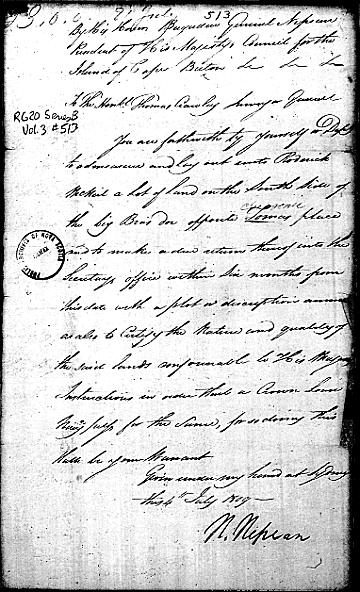 513
By His Honor Brigadier General Nepean
President of His Majesty's Council for the
Island of Cape Breton &c &c &c
To The Honbl Thomas Crawley Surveyor General
RG20 Series B
Vol. 3 # 513
You are forthwith by yourself or Depy
to admeasure and lay out unto Roderick
McNeil a lot of land on the South side of
the Big Bras dor opposite place
and to make a due return thereof into the
Secretarys office within six months from
this date with a plot & description annexed
as also to Certify the Nature and quality of
the said lands conformable to His Majestys
Instructions in order that a Crown Lease
may pass for the Same, for so doing this
shall be your Warrant
PUBLIC ARCHIVES OF NOVA SCOTIA
Given under my hand at Sydney
this 4th July 1809
N. Nepean